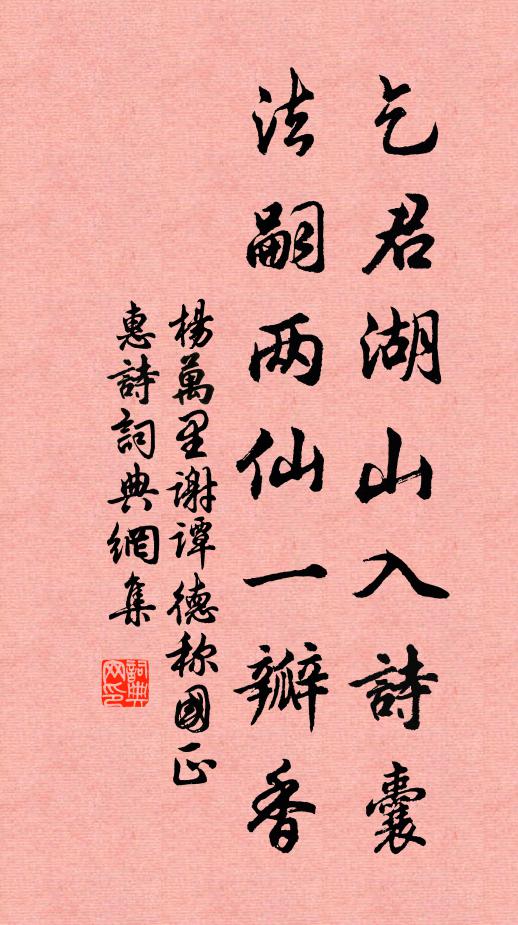 乞君湖山入詩囊
法嗣两仙一瓣香
楊萬里谢谭德称國正
惠詩詞典網集
詞典网印